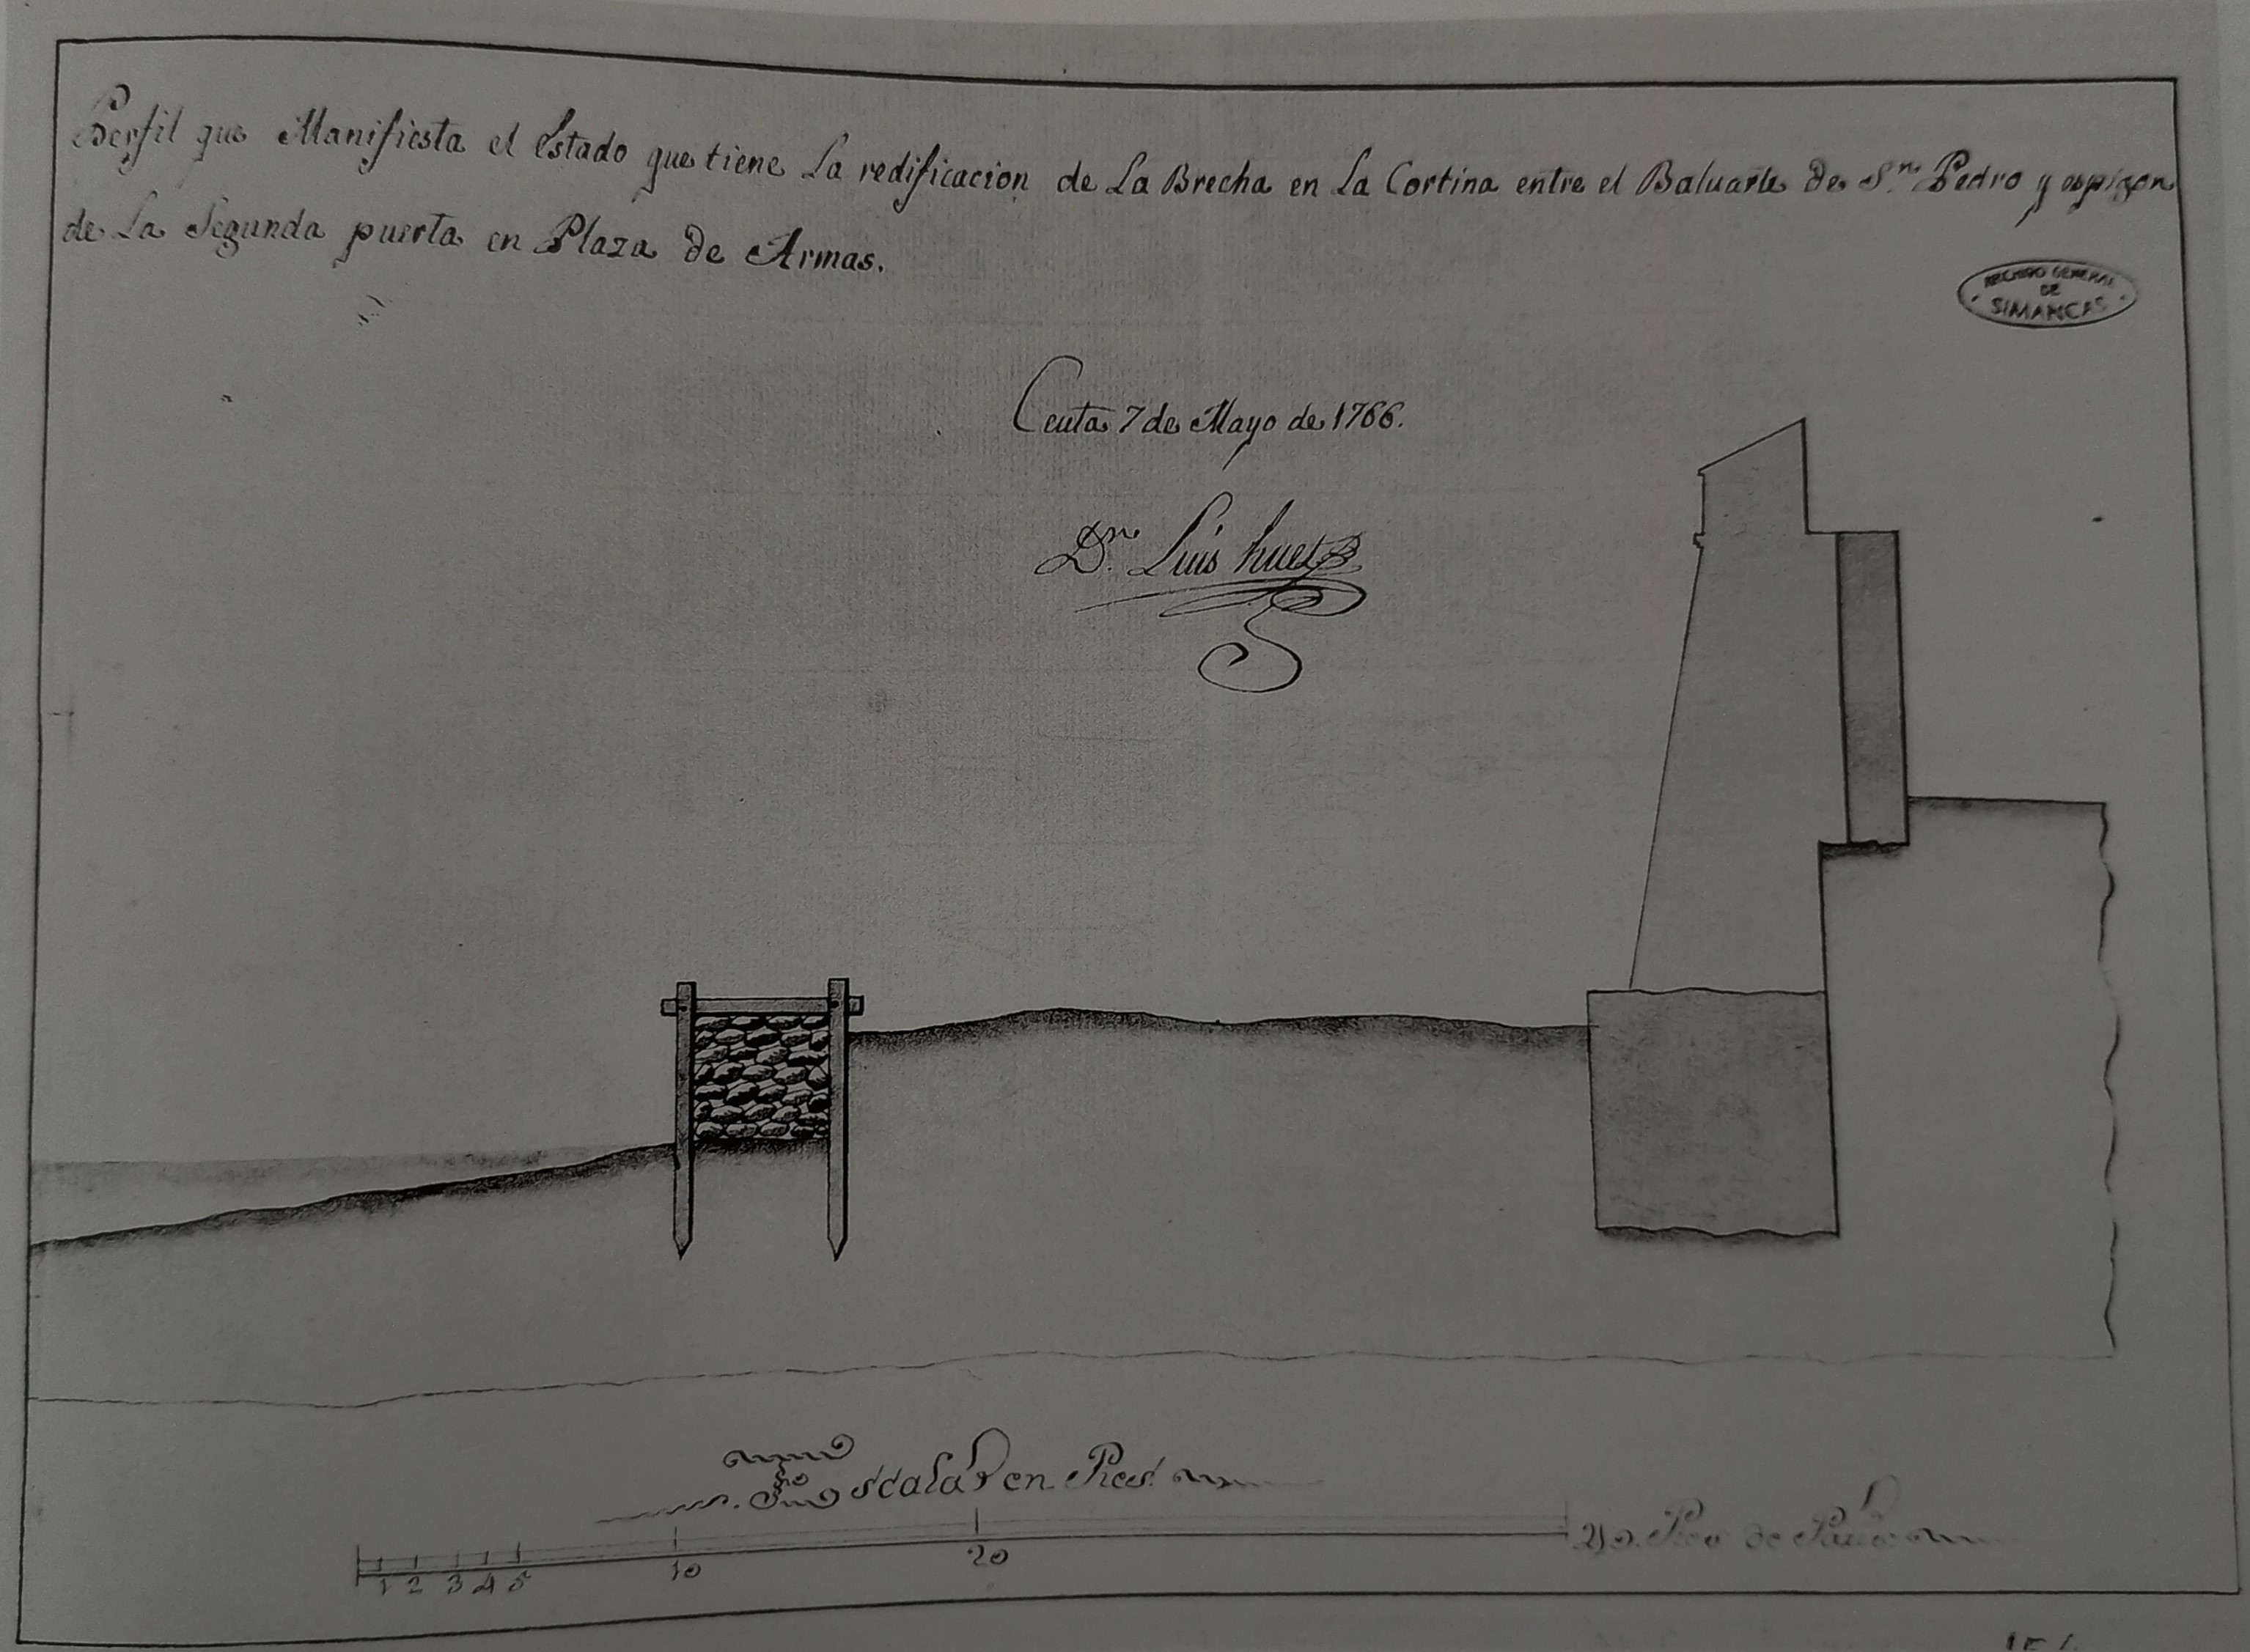 Perfil que Manifiesta el Estado que tiene La redificacion de La Brecha en La Cortina entre el Baluarte de Sn. Pedro y espigon
de La Segunda puerta en Plaza de Armas.
ARCHIVO GENERAL
DE
SIMANCAS
Ceuta 7 de Mayo de 1766.
Dn. Luis huet
Escala en Pies
1 2 3 4 5 10 20
de